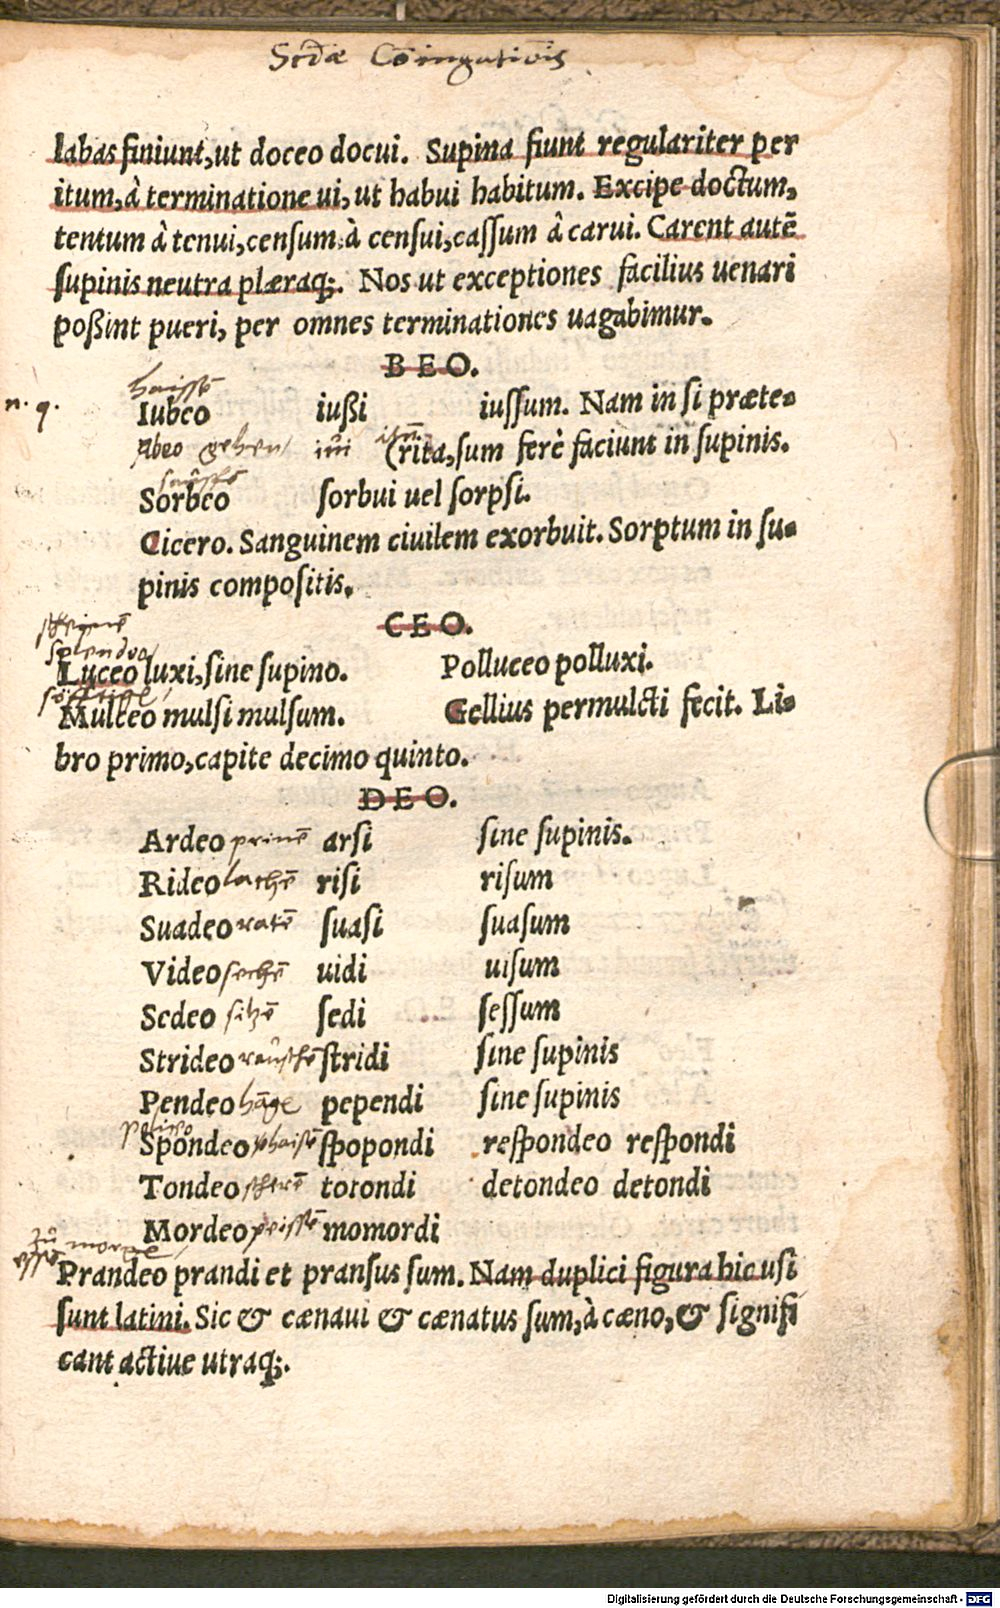 Scdæ Cõiugatiõis
labas finiunt,ut doceo docui. Supina fiunt regulariter per
itum,à terminatione ui,ut habui habitum. Excipe doctum,
tentum à tenui,censum à censui,cassum à carui. Carent autẽ
supinis neutra plæraq;. Nos ut exceptiones facilius uenari
poßint pueri, per omnes terminationes uagabimur.
BEO.
haissẽ
n. q.
Iubeo iußi iussum. Nam in si præte-
Abeo gehen iui itũ (rita,sum ferè faciunt in supinis.
Sorbeo sorbui uel sorpsi.
Cicero. Sanguinem ciuilem exorbuit. Sorptum in su-
pinis compositis.
CEO.
splendeo
Luceo luxi,sine supino. Polluceo polluxi.
Mulceo mulsi mulsum. Gellius permulcti fecit. Li-
bro primo,capite decimo quinto.
DEO.
Ardeo prinẽ arsi sine supinis.
Rideo lachẽ risi risum
Suadeo ratẽ suasi suasum
Video sechẽ uidi uisum
Sedeo sitzẽ sedi sessum
Strideo rauschẽ stridi sine supinis
Pendeo hãge pependi sine supinis
Spondeo phaisẽ spopondi respondeo respondi
Tondeo scherẽ totondi detondeo detondi
Mordeo peissẽ momordi
zů morge
essẽ
Prandeo prandi et pransus sum. Nam duplici figura hic usi
sunt latini. Sic & cænaui & cænatus sum,à cæno,& signifi
cant actiue utraq;.
Digitalisierung gefördert durch die Deutsche Forschungsgemeinschaft - DFG